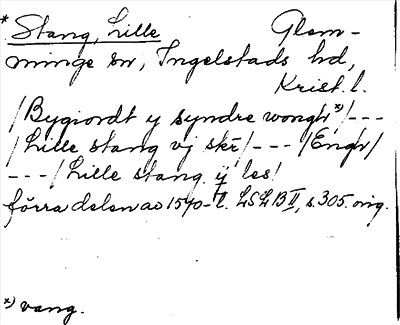 * Stang, Lille Glem-
minge sn, Ingelstads hd,
Krist. l.
/Bygiordt y syndre wongh x)/---
/Lille stang vj skr/---/Engr/
---/Lille stang ij les/
förra delen av 1570-t. LSLB II, s. 305. orig.
x) vang.